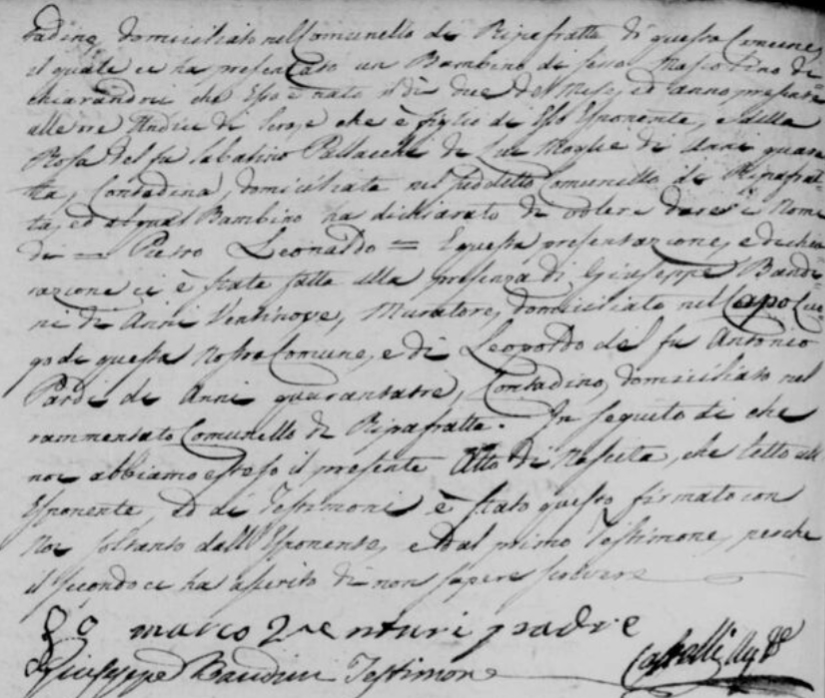 tadino, domiciliato nel Comunello di Ripafratta di questa Comune,
il quale ci ha presentato un Bambino di sesso Mascolino di-
chiarandoci che Esso è nato il dì due del Mese, ed anno presente
alle ore Undici di sera, e che è figlio di Esso Esponente, e della
Rosa del fu Sabatino Pallucchi di Lui Moglie di Anni quara
tta, Contadina, domiciliata nel suddetto Comunello di Ripafrat-
ta, ed al qual Bambino ha dichiarato di volere dare i Nomi
di = Pietro Leonaldo = E questa presentazione, e dichia
razione ci è stata fatta alla presenza di Giuseppe Bandi-
ni di Anni Ventinove, Muratore, domiciliato nel Capo Luo
go di questa Nostra Comune, e di Leopoldo del fu Antonio
Pardi di Anni quarantatre, Contadino, domiciliato nel
rammentato Comunello di Ripafratta. In seguito di che
noi abbiamo esteso il presente Atto di Nascita, che letto all
Esponente ed ai Testimoni è stato questo firmato con
Noi soltanto dall'Esponente, e dal primo Testimone, perche
il secondo ci ha asserito di non sapere scrivere
Io marco Venturi padre
Giuseppe Bandini Testimone